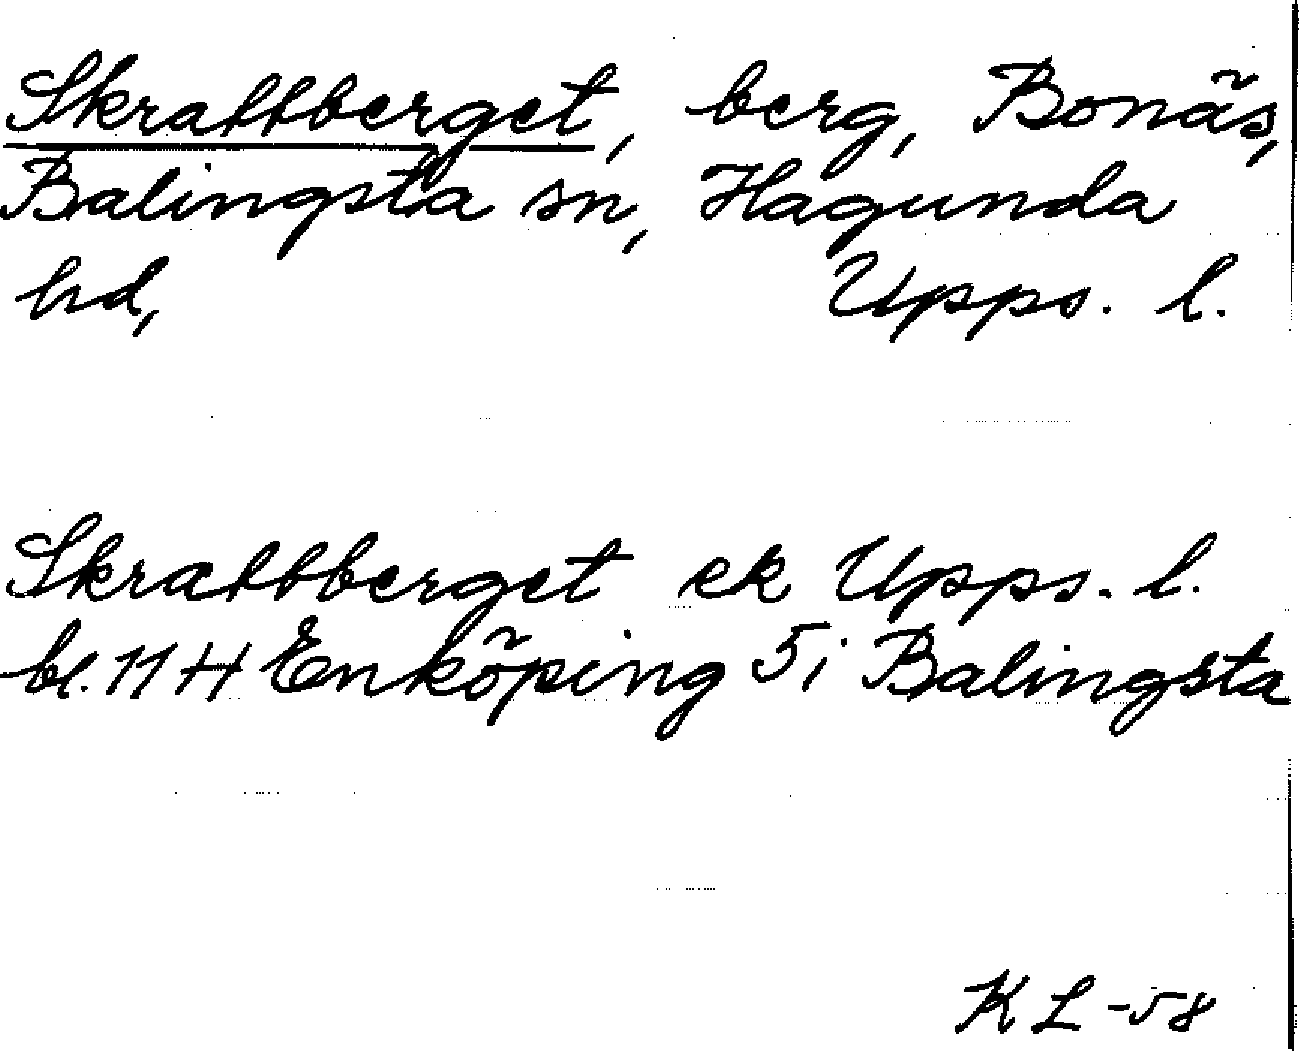 Skrattberget, berg, Bonäs,
Balingsta sn, Hagunda
hd, Upps. l.
Skrattberget ek Upps. l.
bl. 11 H Enköping 5i Balingsta
KL -58